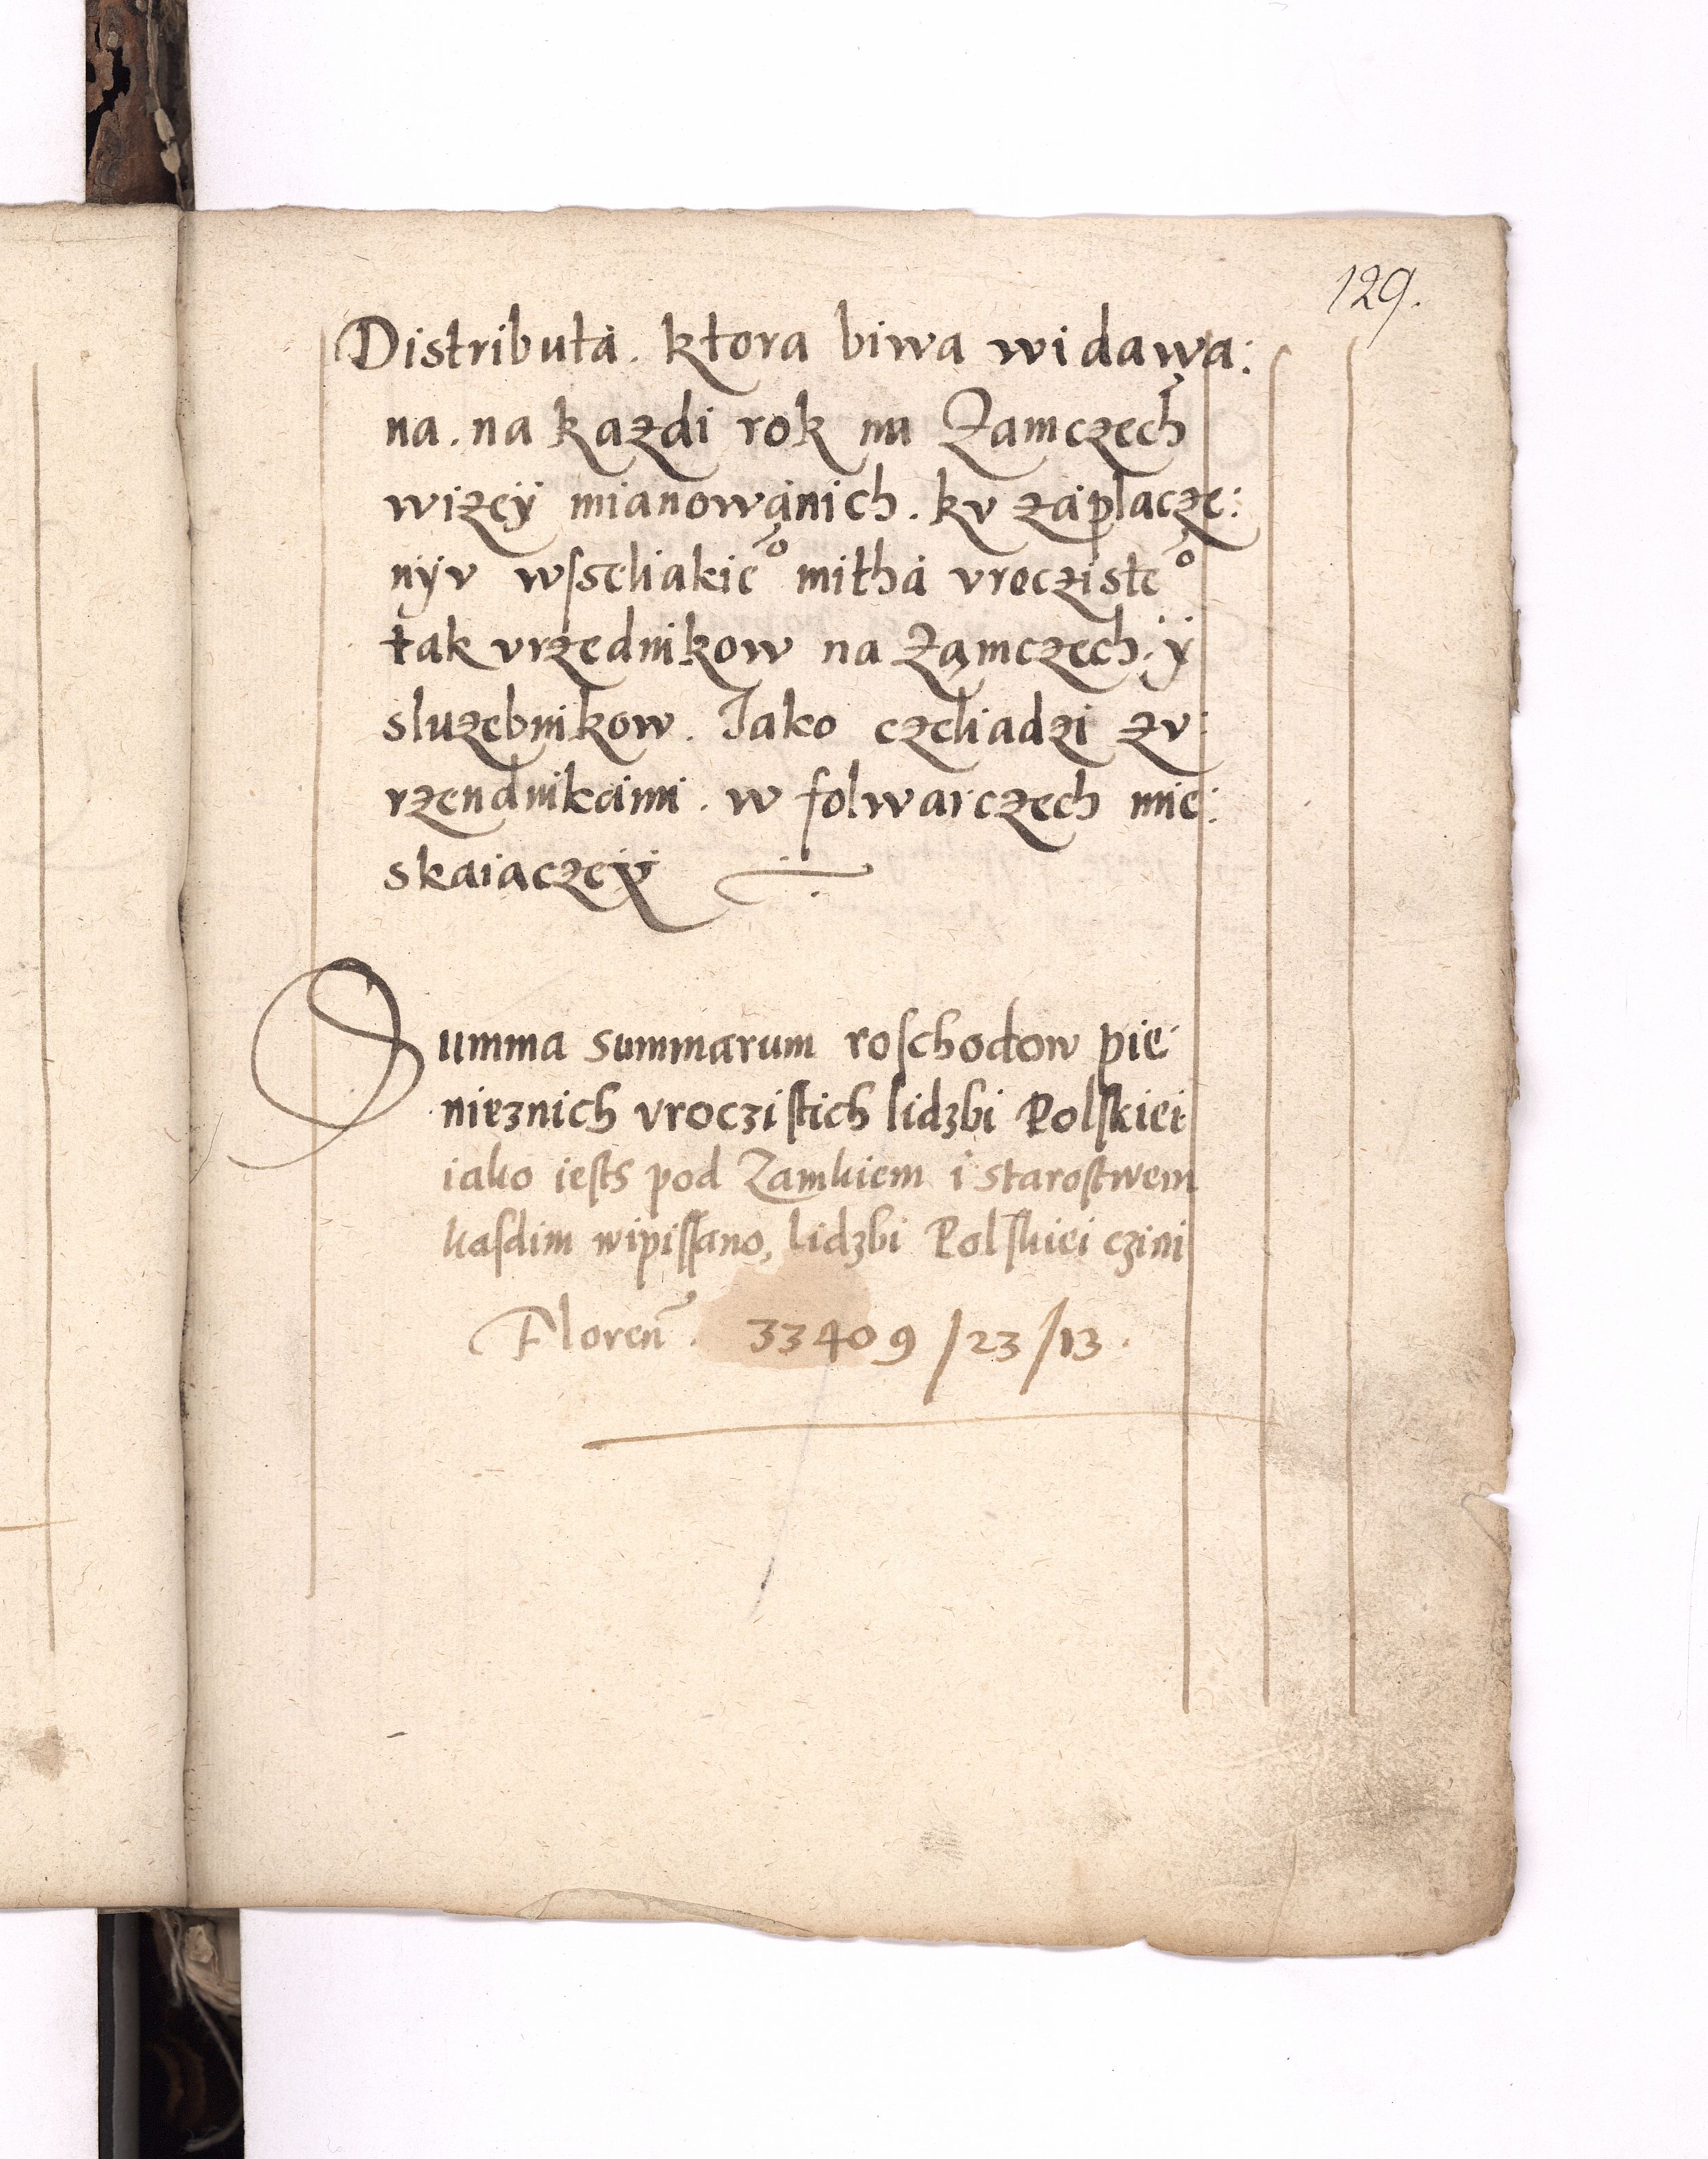 129.
Distributà. ktora biwa widawa:
na. na kazdi rok na Zamczech
wizeÿ mianowànich. kv zàplacze:
nÿv wſseliakieº mithà vrocziſteº
tak vrzednikow na Zamczech. ÿ
sluzebnikow. Iako czeliadzi zv:
rzendnikàmi. w folwarczech mie:
skaiączeÿ
Summa summarum roſchodow pie
nieznich vrocziſtich lidzbi Polſkiei
iako ieſts pod Zamkiem i ſtaroſtwem
kaſdim wipiſſano, lidzbi Polſkiei czini
Floren̄. 33409/23/13.